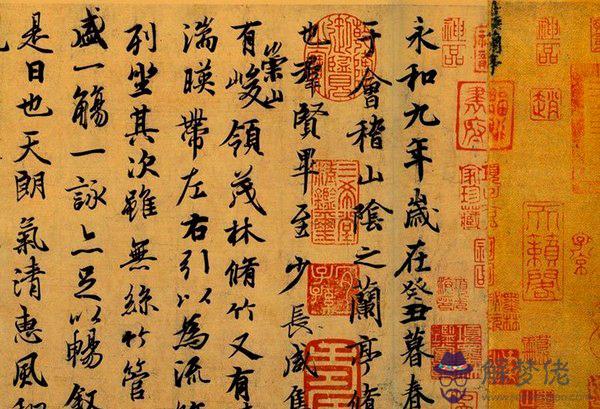 神品
趙
天籟閣
子京
神品
永和九年歲在癸丑暮春
于會稽山陰之蘭亭脩
也羣賢畢至少長咸集
三希堂精鑑璽
有崇山峻領茂林脩竹又有
湍暎帶左右引以為流
列坐其次雖無絲竹管
盛一觴一詠亦足以暢敘
是日也天朗氣清惠風和
解梦佬